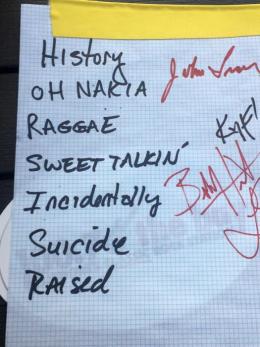 History
OH NARIA
RAGGAE
SWEET TALKIN'
Incidentally
Suicide
RAISED